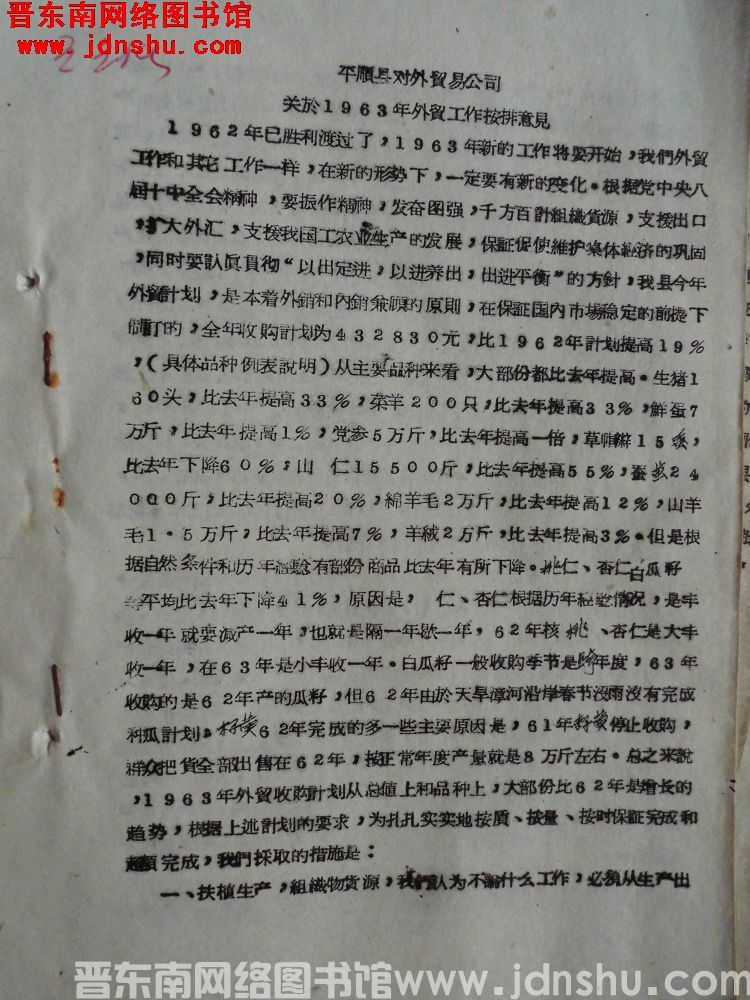 晋东南网络图书馆
www.jdnshu.com
平順县对外貿易公司
关於1963年外貿工作按排意見
1962年已胜利渡过了，1963年新的工作将要开始，我們外貿
工作和其它工作一样，在新的形势下，一定要有新的变化。根据党中央八
届十中全会精神，要振作精神，发奋图强，千方百計組織貨源，支援出口
，扩大外汇，支援我国工农业生产的发展，保証促使維护集体經济的巩固
，同时要認眞貫彻“以出定进，以进养出，出进平衡”的方針，我县今年
外貿計划，是本着外銷和內銷兼顾的原則，在保証国内市場稳定的前提下
制訂的，全年收购計划为432830元，比1962年計划提高19%
，（具体品种例表說明）从主要品种来看，大部份都比去年提高。生猪1
60头，比去年提高33%，菜羊200只，比去年提高33%，鮮蛋7
万斤，比去年提高1%，党参5万斤，比去年提高一倍，草帽辮15
比去年下降60%，山 仁15500斤，比去年提高55%，蚕 24
000斤，比去年提高20%，綿羊毛2万斤，比去年提高12%，山羊
毛1.5万斤，比去年提高7%，羊絨2万斤，比去年提高3%。但是根
据自然条件和历年經驗有部份商品比去年有所下降。桃仁、杏仁白瓜籽
等平均比去年下降41%，原因是， 仁、杏仁根据历年經驗情况，是丰
收一年就要減产一年，也就是隔一年歇一年，62年核桃、杏仁是大丰
收一年，在63年是小丰收一年。白瓜籽一般收购季节是跨年度，63年
收购的是62年产的瓜籽，但62年由於天旱漳河沿岸春节沒雨沒有完成
种瓜計划， 62年完成的多一些主要原因是，61年 停止收购，
群众把貨全部出售在62年，按正常年度产量就是8万斤左右。总之来說
，1963年外貿收购計划从总値上和品种上，大部份比62年是增长的
趋势，根据上述計划的要求，为扎扎实实地按质、按量、按时保証完成和
超額完成，我們採取的措施是：
一、扶植生产，組織物貨源，我們認为不論什么工作，必須从生产出
晋东南网络图书馆www.jdnshu.com